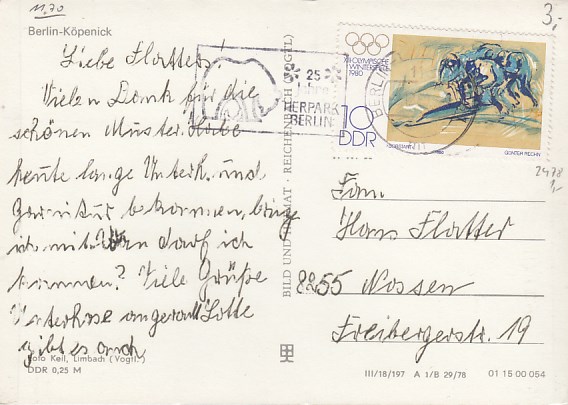 11.70
3,-
Berlin-Köpenick
Liebe Flatters!
Vielen Dank für die
schönen Muster. Habe
heute lange Unterh. und
Garnitur bekommen, bringe
ich mit. Wann darf ich
kommen? Viele Grüße
Lotte
Unterhose angerauht
gibt es auch
Foto Keil, Limbach (Vogtl.)
DDR 0,25 M
BILD UND HEIMAT · REICHENBACH (VOGTL)
25
Jahre
TIERPARK
BERLIN
BERLIN
XIII. OLYMPISCHE
WINTERSPIELE
1980
10
DDR
1980
GÜNTER RECHN
2478
1,-
Fam
Hans Flatter
8255 Nossen
Freibergerstr. 19
III/18/197 A 1/B 29/78 01 15 00 054